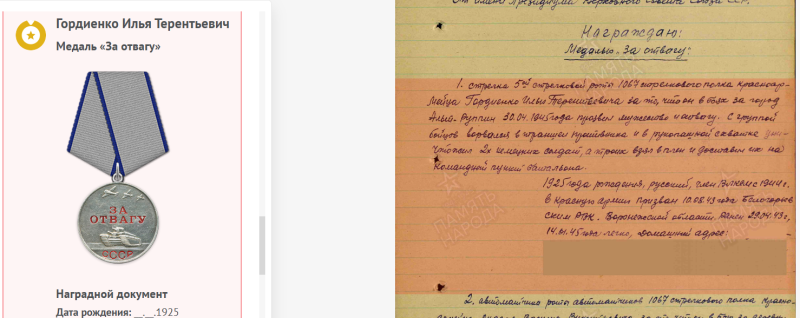 Гордиенко Илья Терентьевич
Медаль «За отвагу»
ЗА
ОТВАГУ
СССР
Наградной документ
Дата рождения: __.__.1925
От имени Президиума Верховного Совета Союза ССР
Награждаю:
Медалью „За отвагу":
1. стрелка 5ой стрелковой роты 1067 стрелкового полка красноар-
мейца Гордиенко Илью Терентьевича за то, что он в боях за город
30.04.1945 года проявил мужество и отвагу. С группой
бойцов ворвался в траншеи противника и в рукопашной схватке уни-
чтожил 2х немецких солдат, а троих взял в плен и доставил их на
командный пункт батальона.
1925 года рождения, русский, член ВЛКСМ с 1944 г.
в Красную армию призван 10.02.43 года
ским РВК. Воронежской области. Ранен 29.04.43 г,
14.01.45 года легко, домашний адрес:
2. автоматчика роты автоматчиков 1067 стрелкового полка красно-
ПАМЯТЬ
НАРОДА